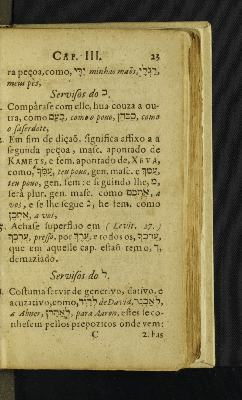 CAP. III. 23
ra peçoa, como, יָדַי, minhas maõs, רַגְלַי,
meus pès,
Serviſos do כ.
Compàraſe com elle, hua couza a ou-
tra, como כְּעָם, como o povo, כַּכֹּהֵן, como
o ſaſerdote,
Em fim de diçaõ, ſignifica affixo a a
ſegunda peçoa, maſc. apontado de
KAMETS, e fem. apontado de, XEVA,
como, עַמְּךָ, teu povo, gen. maſc. e עַמֵּךְ,
teu povo, gen. fem: e ſeguindo lhe, ם,
ſerà plur. gen. maſc. como אֶתְכֶם, a
vos, e ſe lhe ſegue ן, he fem. como
אֶתְכֶן, a vos,
Achaſe ſuperfluo em (Levit. 27.)
עֶרְכְּךָ, preſſo, por עֵרֶךְ, e todos os, עֶרְכְּךָ,
que em aquelle cap. eſtaõ tem o, ךָ,
demaziado.
Serviſos do ל.
Coſtuma ſervir de genetivo, dativo, e
acuzativo, como, לְדָוִד, de David, לְאַבְנֵר,
a Abner, לְאַהֲרֹן, para Aaron. eſtes ſe co-
nheſem pellos prepozitos onde vem:
C 2. Fas